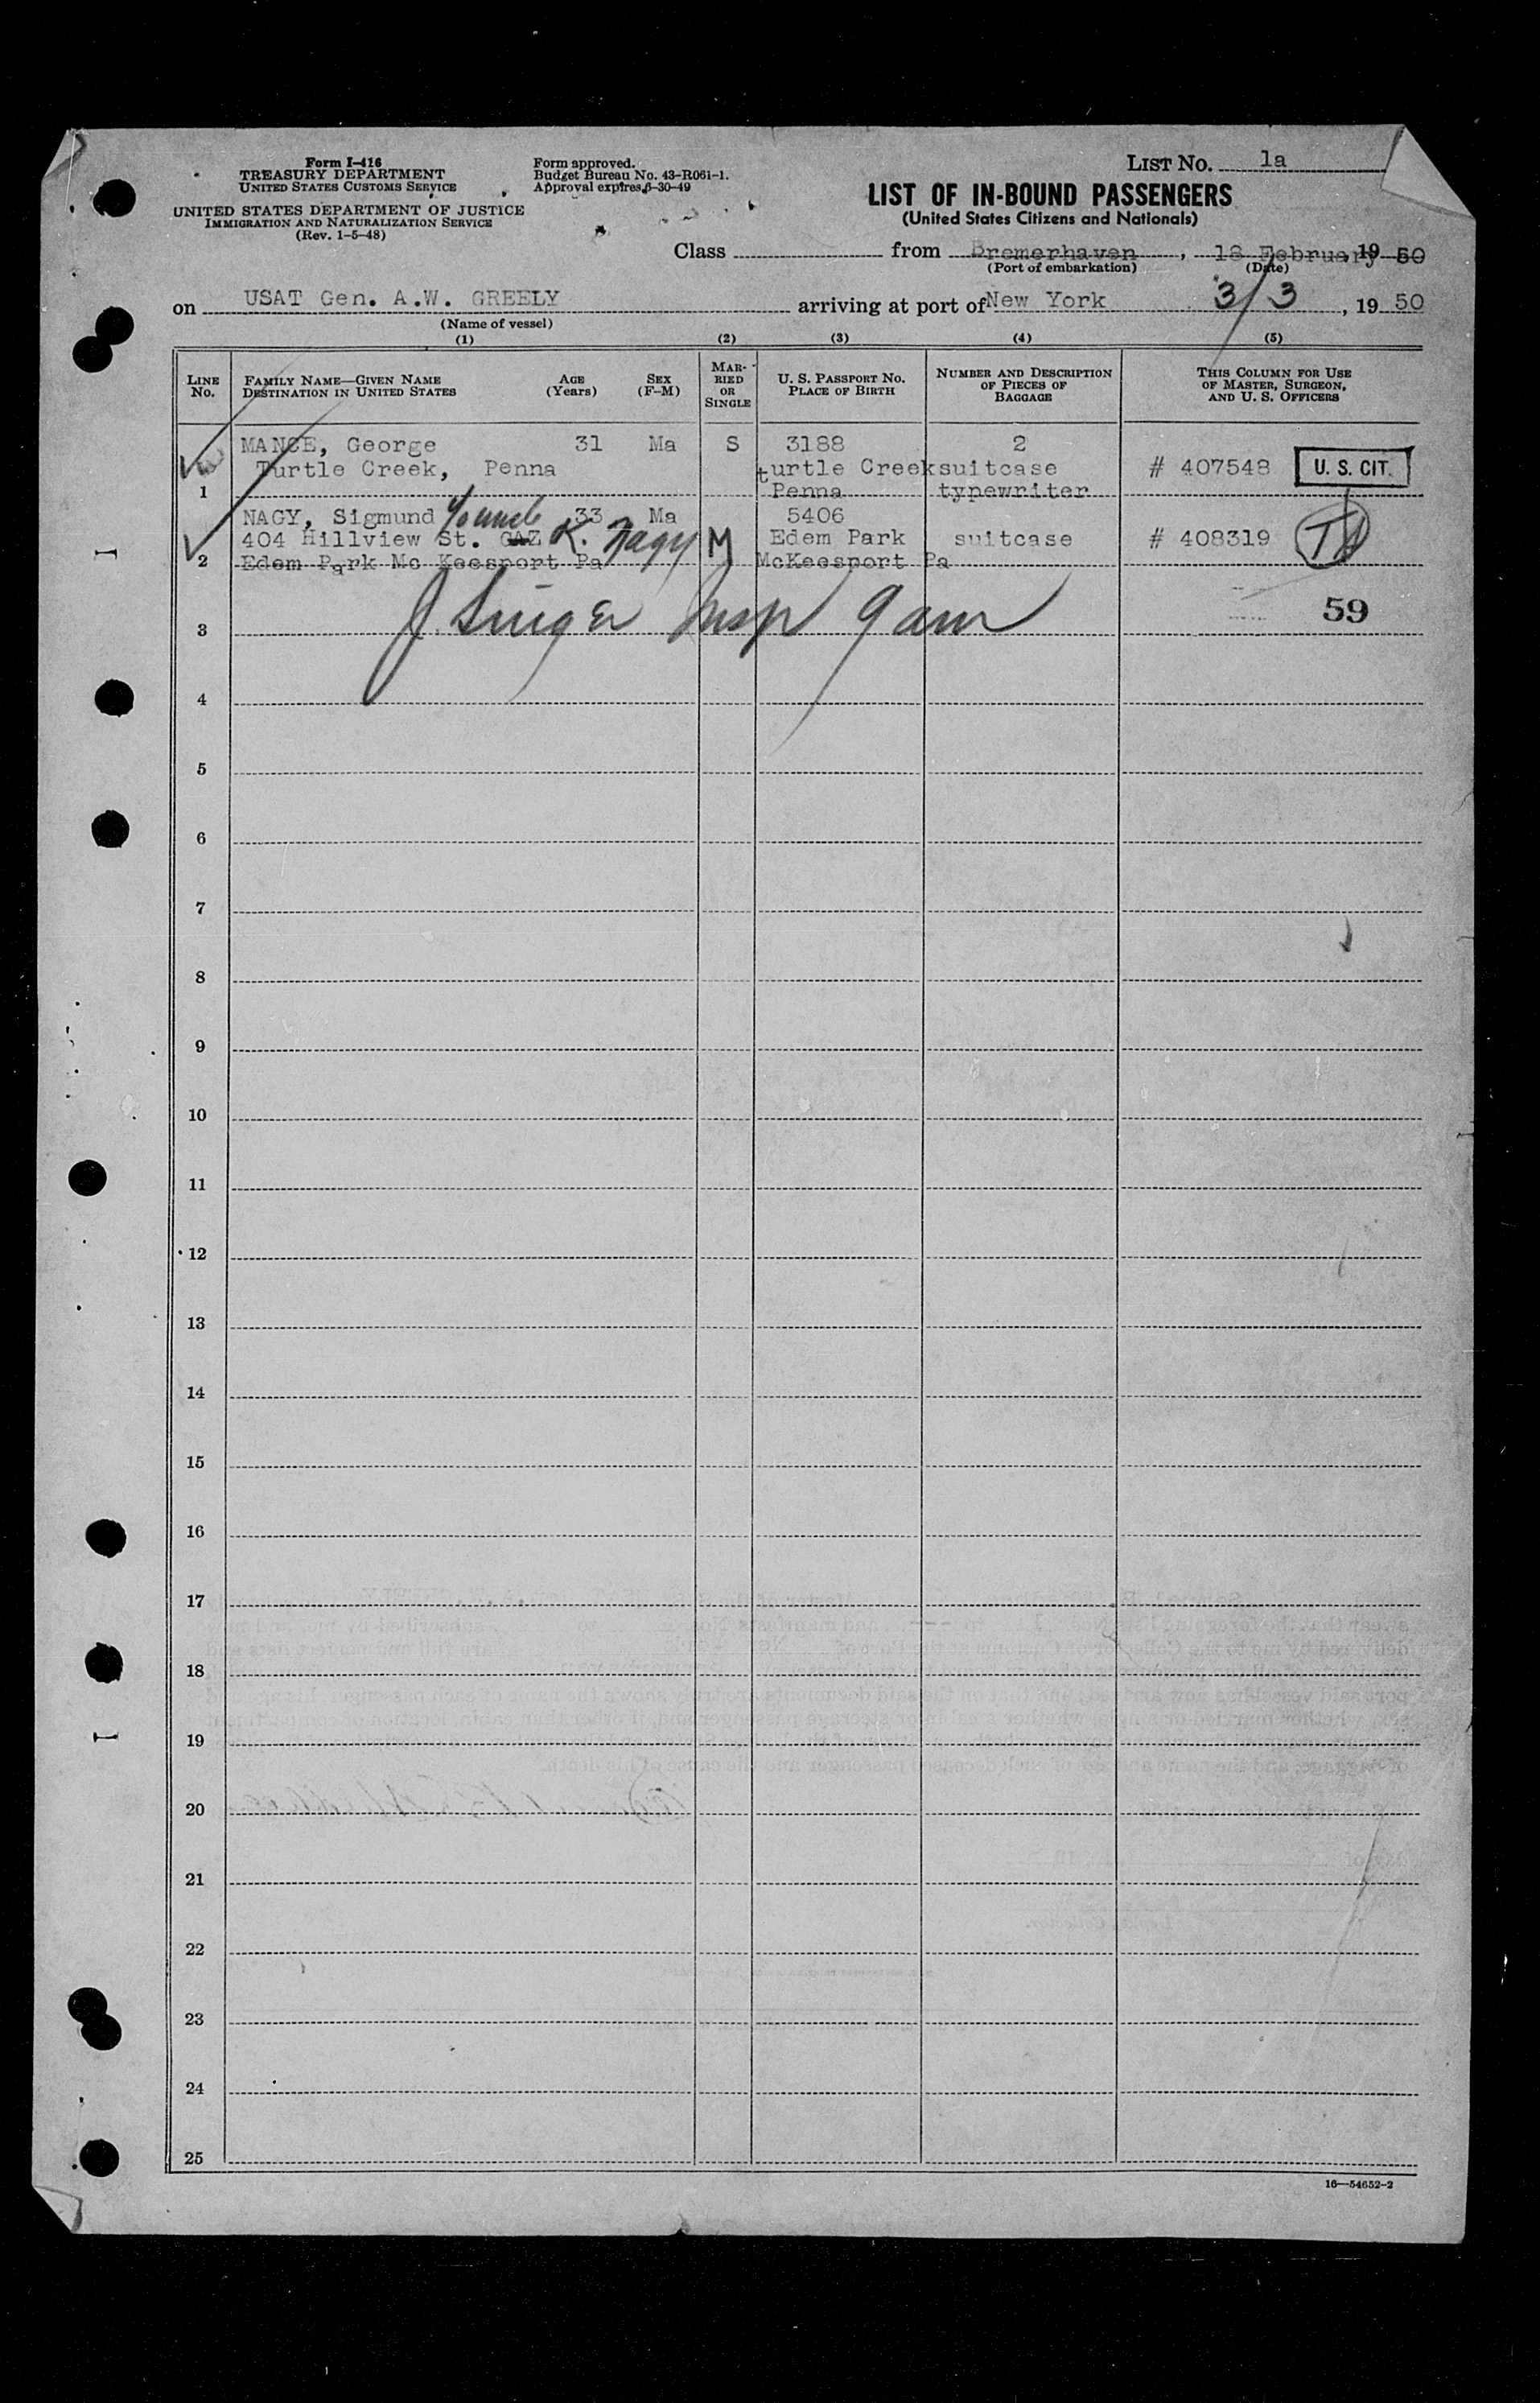 Form I-416
TREASURY DEPARTMENT
UNITED STATES CUSTOMS SERVICE
UNITED STATES DEPARTMENT OF JUSTICE
IMMIGRATION AND NATURALIZATION SERVICE
(Rev. 1-5-48)
Form approved.
Budget Bureau No. 43-R061-1.
Approval expires 6-30-49
LIST No. 1a
LIST OF IN-BOUND PASSENGERS
(United States Citizens and Nationals)
Class from Bremerhaven, 18 February, 19 50
(Port of embarkation) (Date)
on USAT Gen. A.W. GREELY arriving at port of New York 3/3, 19 50
(Name of vessel)
(1) (2) (3) (4) (5)
LINE No.
FAMILY NAME—GIVEN NAME
DESTINATION IN UNITED STATES
AGE (Years)
SEX (F-M)
MARRIED OR SINGLE
U. S. PASSPORT No.
PLACE OF BIRTH
NUMBER AND DESCRIPTION OF PIECES OF BAGGAGE
THIS COLUMN FOR USE OF MASTER, SURGEON, AND U. S. OFFICERS
MANCE, George 31 Ma S 3188 2
Turtle Creek, Penna turtle Creek suitcase # 407548 U. S. CIT.
1 Penna typewriter
NAGY, Sigmund 33 Ma 5406
404 Hillview St. K. Nagy M Edem Park suitcase # 408319
2 Edem Park Mc Keesport Pa McKeesport Pa
J. Singer Insp 9 am 59
3
4
5
6
7
8
9
10
11
12
13
14
15
16
17
18
19
20
21
22
23
24
25
16—54652-2